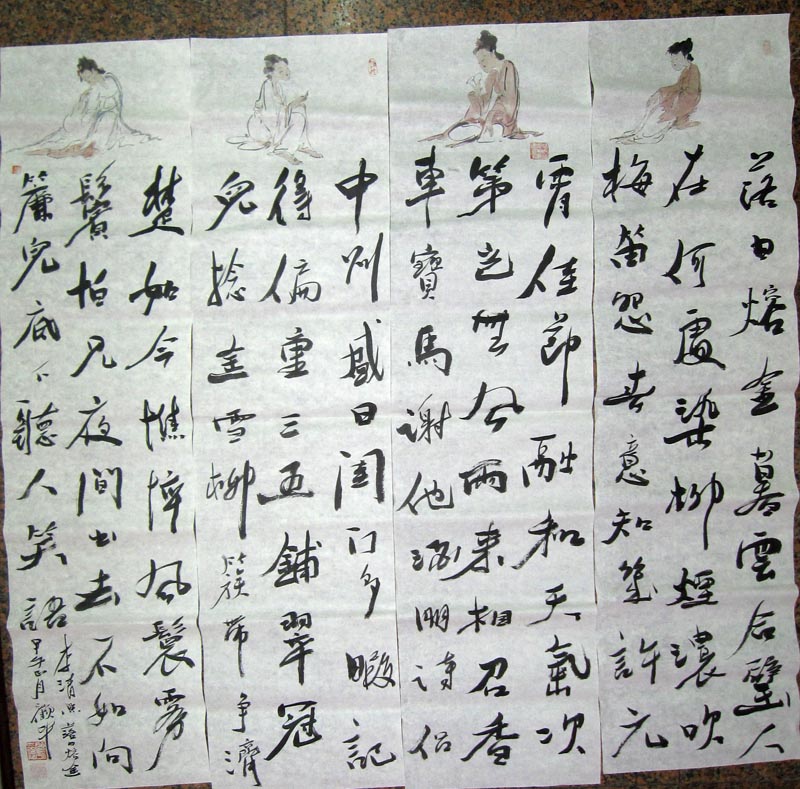 落日熔金暮雲合璧人
在何處染柳煙濃吹
梅笛怨春意知幾許元
宵佳節融和天氣次
第豈無風雨来相召香
車寶馬謝他酒朋詩侣
中州盛日閨门多暇記
得偏重三五鋪翠冠
兒捻金雪柳簇帶争濟
楚如今憔悴風鬟霧
鬢怕见夜間出去不如向
簾兒底下聽人笑語
李清照落日熔金
甲午正月